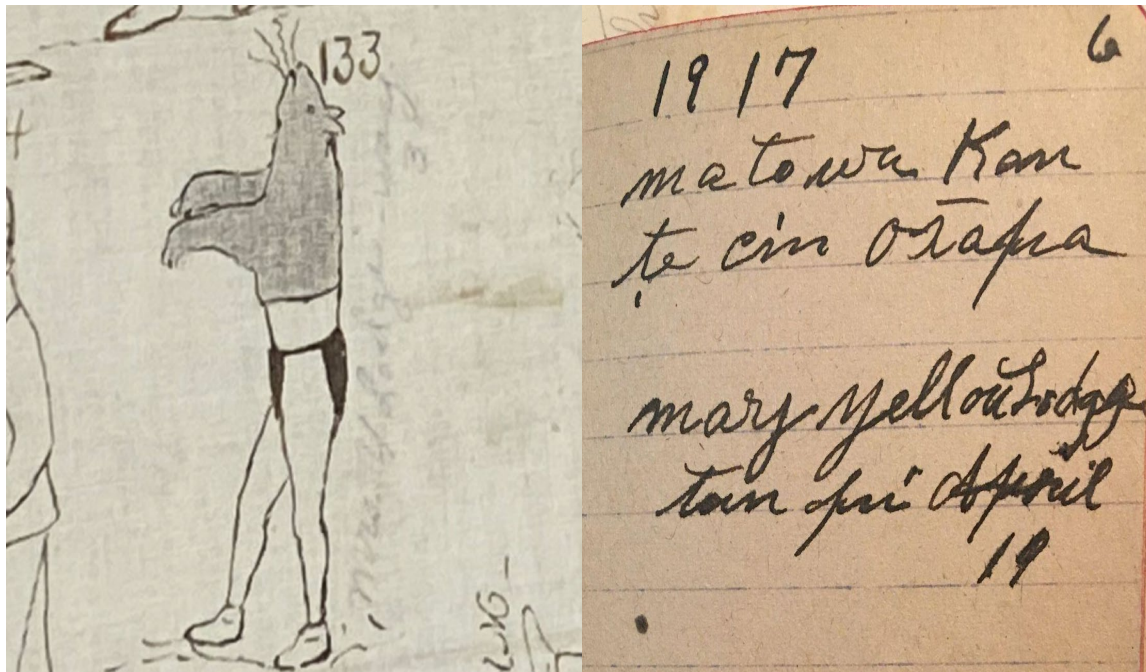 133
1917
6
mato wa Kan
ṭe cin oṫapa
mary Yellow Lodge
tan pi April
19